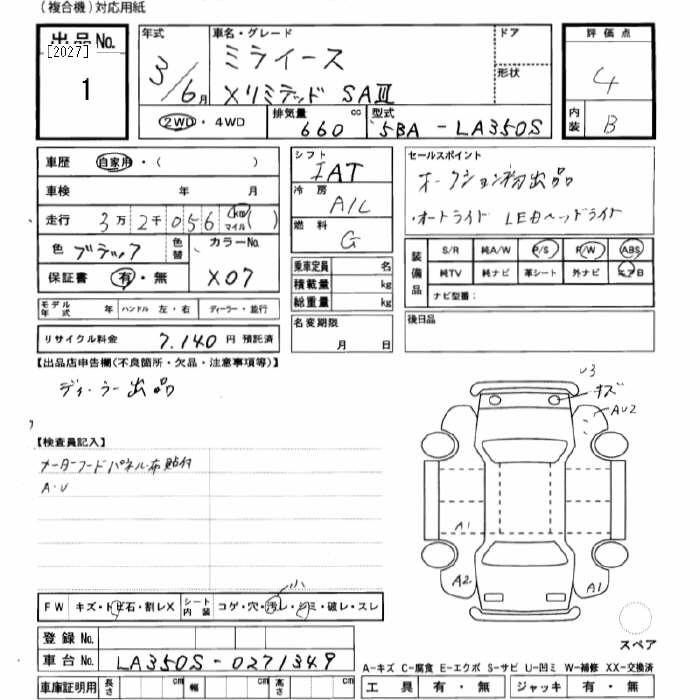 (複合機)対応用紙
出品No. 年式 車名・グレード ドア 評価点
[2027]
1 3/6月 ミライース 形状 4
Xリミテッド SAⅢ
2WD・4WD 排気量 660 cc 型式 5BA-LA350S 内装 B
車歴 自家用・( )
車検 年 月
走行 3万2千056 km マイル ( )
色 ブラック 色替 カラーNo. X07
保証書 有・無
モデル年式 ハンドル 左・右 ディーラー・並行
リサイクル料金 7,140円 預託済
シフト IAT
冷房 A/C
燃料 G
乗車定員 名
積載量 kg
総重量 kg
名変期限 月 日
セールスポイント
オークション初出品
・オートライト LEDヘッドライト
装備品 S/R 純A/W P/S P/W ABS
純TV 純ナビ 革シート 外ナビ エアB
ナビ型番:
後日品
【出品店申告欄(不良箇所・欠品・注意事項等)】
ディーラー出品
【検査員記入】
メーターフードパネル布貼付
A・U
U3
キズ
AU2
A1
A2
A1
スペア
FW キズ・トビ石・割レX シート内装 コゲ・穴・汚レ・シミ・破レ・スレ
小
登録No.
車台No. LA350S-0271349
車庫証明用 長さ cm 幅 cm 高さ cm
A-キズ C-腐食 E-エクボ S-サビ U-凹ミ W-補修 XX-交換済
工具 有・無 ジャッキ 有・無